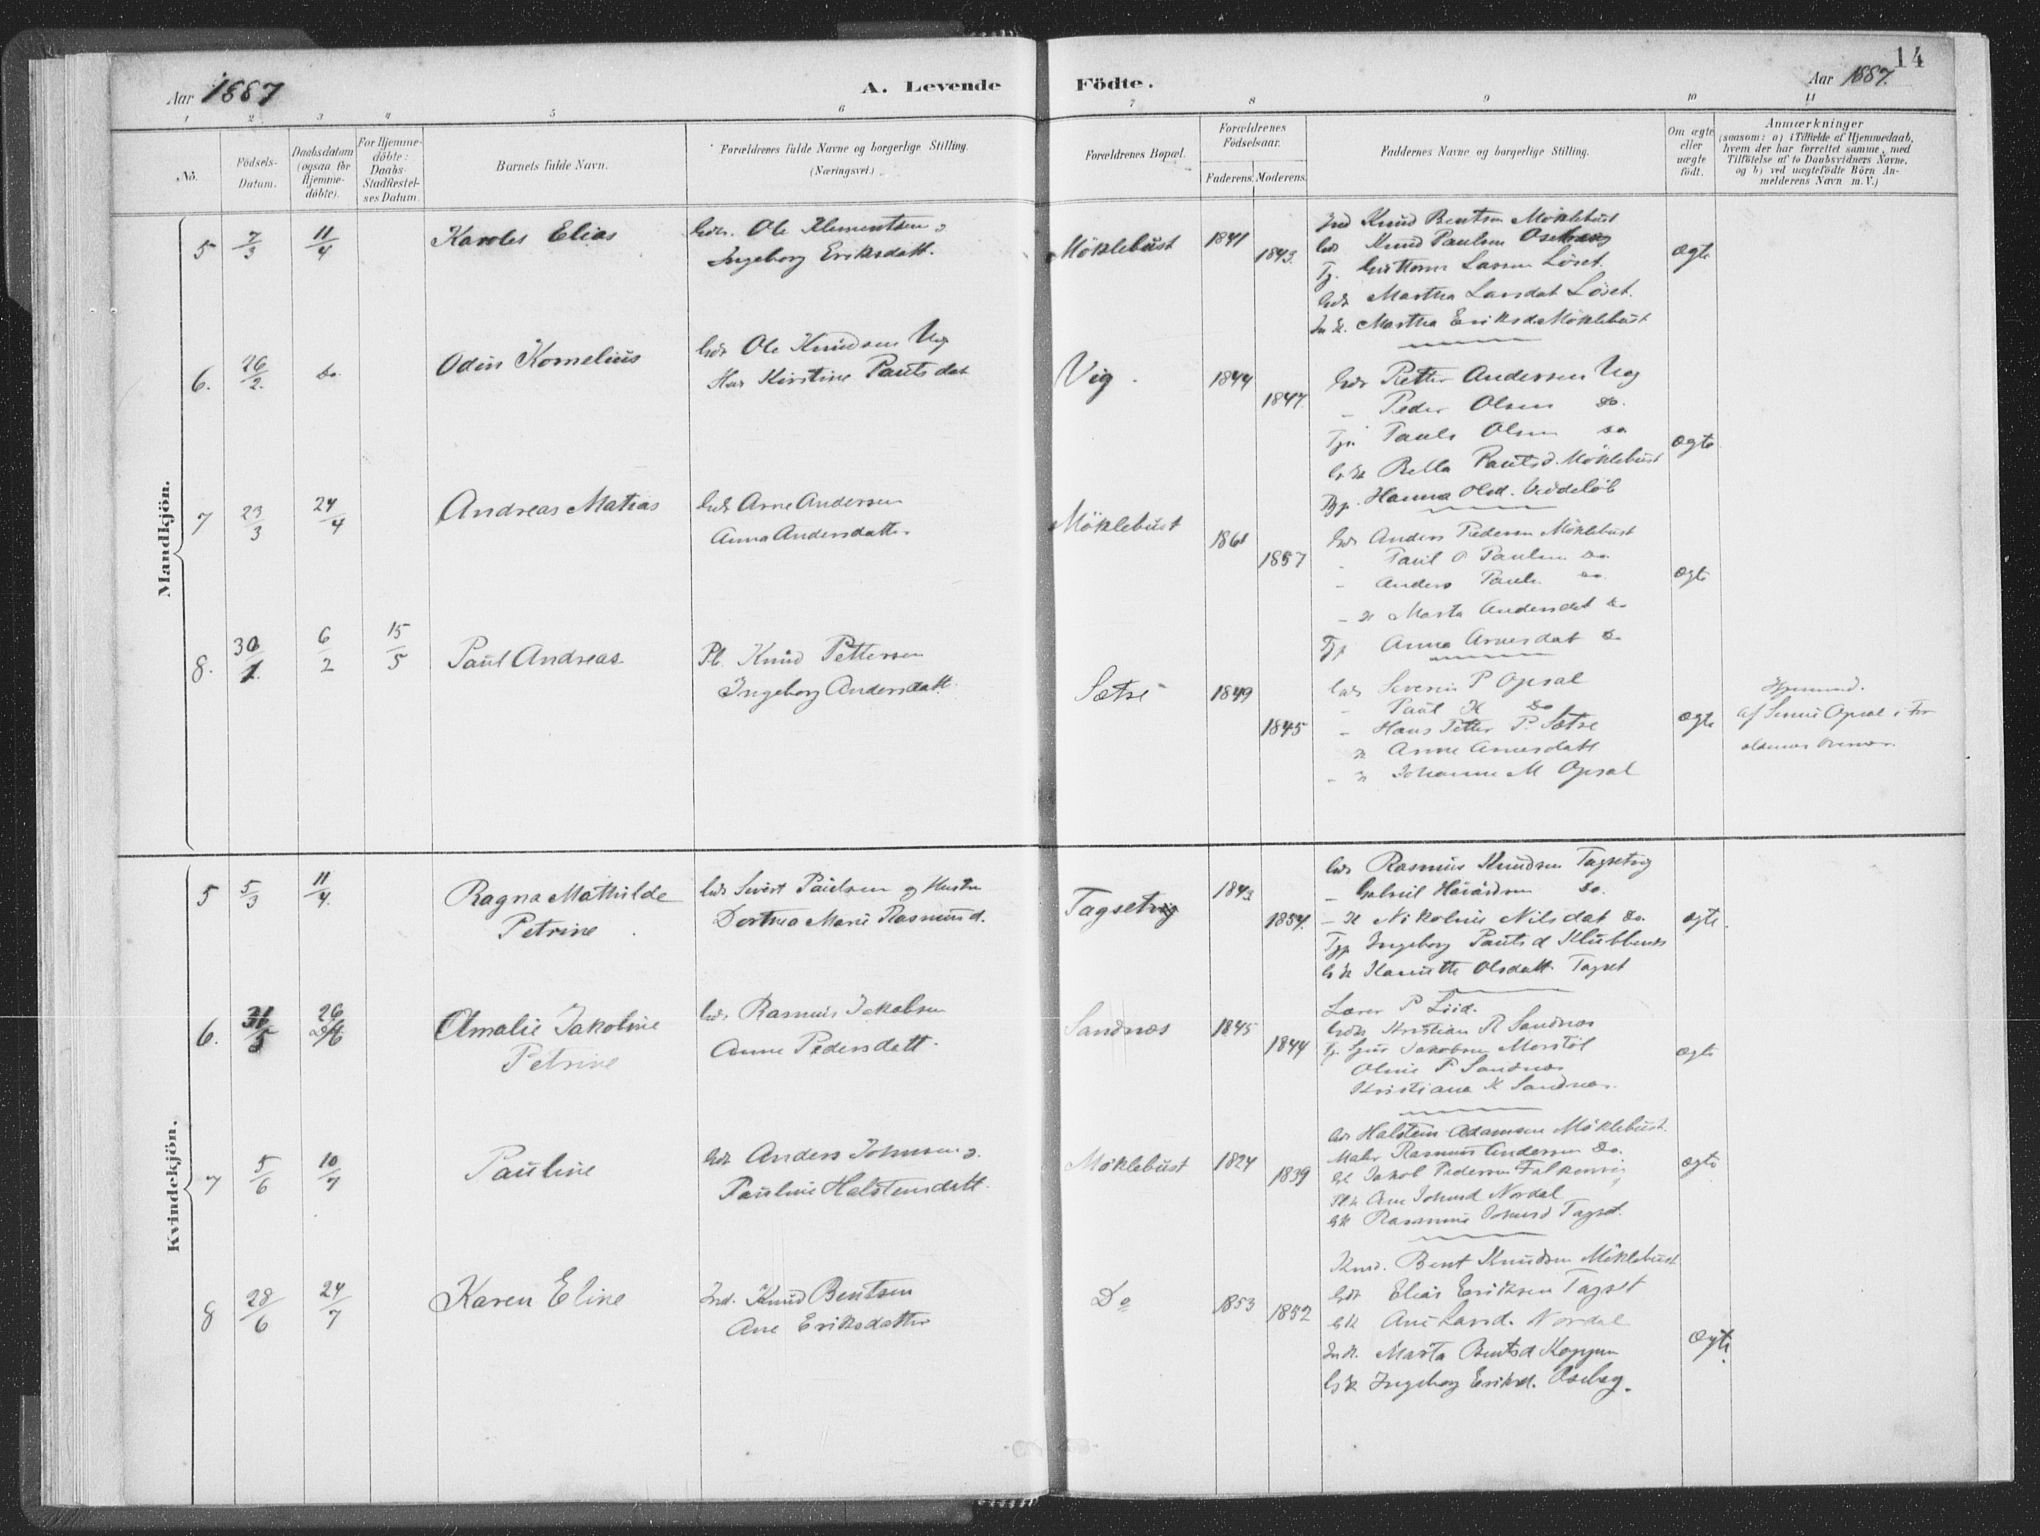 14
Aar 1887
A. Levende
Födte.
Aar 1887.
1 2 3 4 5 6 7 8 9 10 11
No.
Födsels-
Datum.
Daabsdatum
(ogsaa for
Hjemme-
döbte).
For Hjemme-
döbte:
Daabs-
Stadfæstel-
ses Datum.
Barnets fulde Navn.
Forældrenes fulde Navne og borgerlige Stilling.
(Næringsvei)
Forældrenes Bopæl.
Forældrenes
Födselsaar.
Faderens. Moderens.
Faddernes Navne og borgerlige Stilling.
Om ægte
eller
uægte
födt.
Anmærkninger
(saasom: a) i Tilfælde af Hjemmedaab,
hvem der har forrettet samme, med
Tilföielse af to Daabsvidners Navne,
og b) ved uægtefödte Börn An-
melderens Navn m. V.)
Mandkjön.
5 7/3 11/4 Karoles Elias
Gdr. Ole Klementsen
Ingeborg Eriksdatt.
Möklebust 1841 1843.
Ind Knud Bentsen Möklebust
Gdr Knud Paulsen
Tj. Lassen Löset.
Gdr Martha Larsdat Löset.
Martha Eriksd. Möklebust
ægte
6. 26/2. Do. Odin Kornelius
Gdr Ole Knudsen Vig
Hus Kirstine Paulsdat
Vig. 1844 1847.
Gdr Petter Andersen Vig
- Peder Olsen Do.
Tj. Olsen Do.
Bella Paulsd. Möklebust
Hanna Olsd.
ægte
7 23/3 24/4 Andreas Matias
Gdr Arne Andersen
Anna Andersdatter.
Möklebust 1861 1857
Gdr Anders Pedersen Möklebust
- Paul P Paulsen Do.
- Anders Do.
- K Marta Andersdat Do
Anna Arnesdat Do
ægte
8. 30/1. 6/2 15/5 Paul Andreas
Pl. Knud Pettersen
Ingeborg Andersdatt.
Sætre 1849 1845
Gdr Severin P Opsal
- Paul K Do
- Hans Petter P. Sætre
K Anne Arnesdatt
- K Johanne M Opsal
ægte
Kvindekjön.
5 5/3 11/4 Ragna Mathilde
Petrine
Gdr Sivert Paulsen og Hustru
Dorthea Marie Rasmusd.
Tagsetvig 1843 1854.
Gdr Rasmus Knudsen Tagsetvig
- Gabriel Do.
- K Nikoline Nilsdat Do.
Ingeborg Paulsd
Olsdatt. Tagset
ægte.
6. 31/5 26/6 Amalie Jakoline
Petrine
Gdr Rasmus Jakobsen
Anne Pedersdatt.
Sandnæs 1845 1844
Lærer P Liid.
Kristian R Sandnæs
Jakobsen
Oline P Sandnæs
Kristiane K Sandnæs.
ægte
7 5/6 10/7 Pauline
Gdr Anders Johnsen
Pauline Halstensdatt.
Möklebust 1824 1839
Gdr Halstein Adamsen Möklebust.
Maler Rasmus Andersen Do.
Jakob Pedersen
Ane Nordal
Tagset.
ægte
8 28/6 24/7 Karen Eline
Ind. Knud Bentsen
Ane Eriksdatter
Do 1853 1852
Bent Knudsen Möklebust
Gdr Elias Eriksen Tagset
Nordal
Marta Bentsd
Ingeborg Eriksd.
ægte.